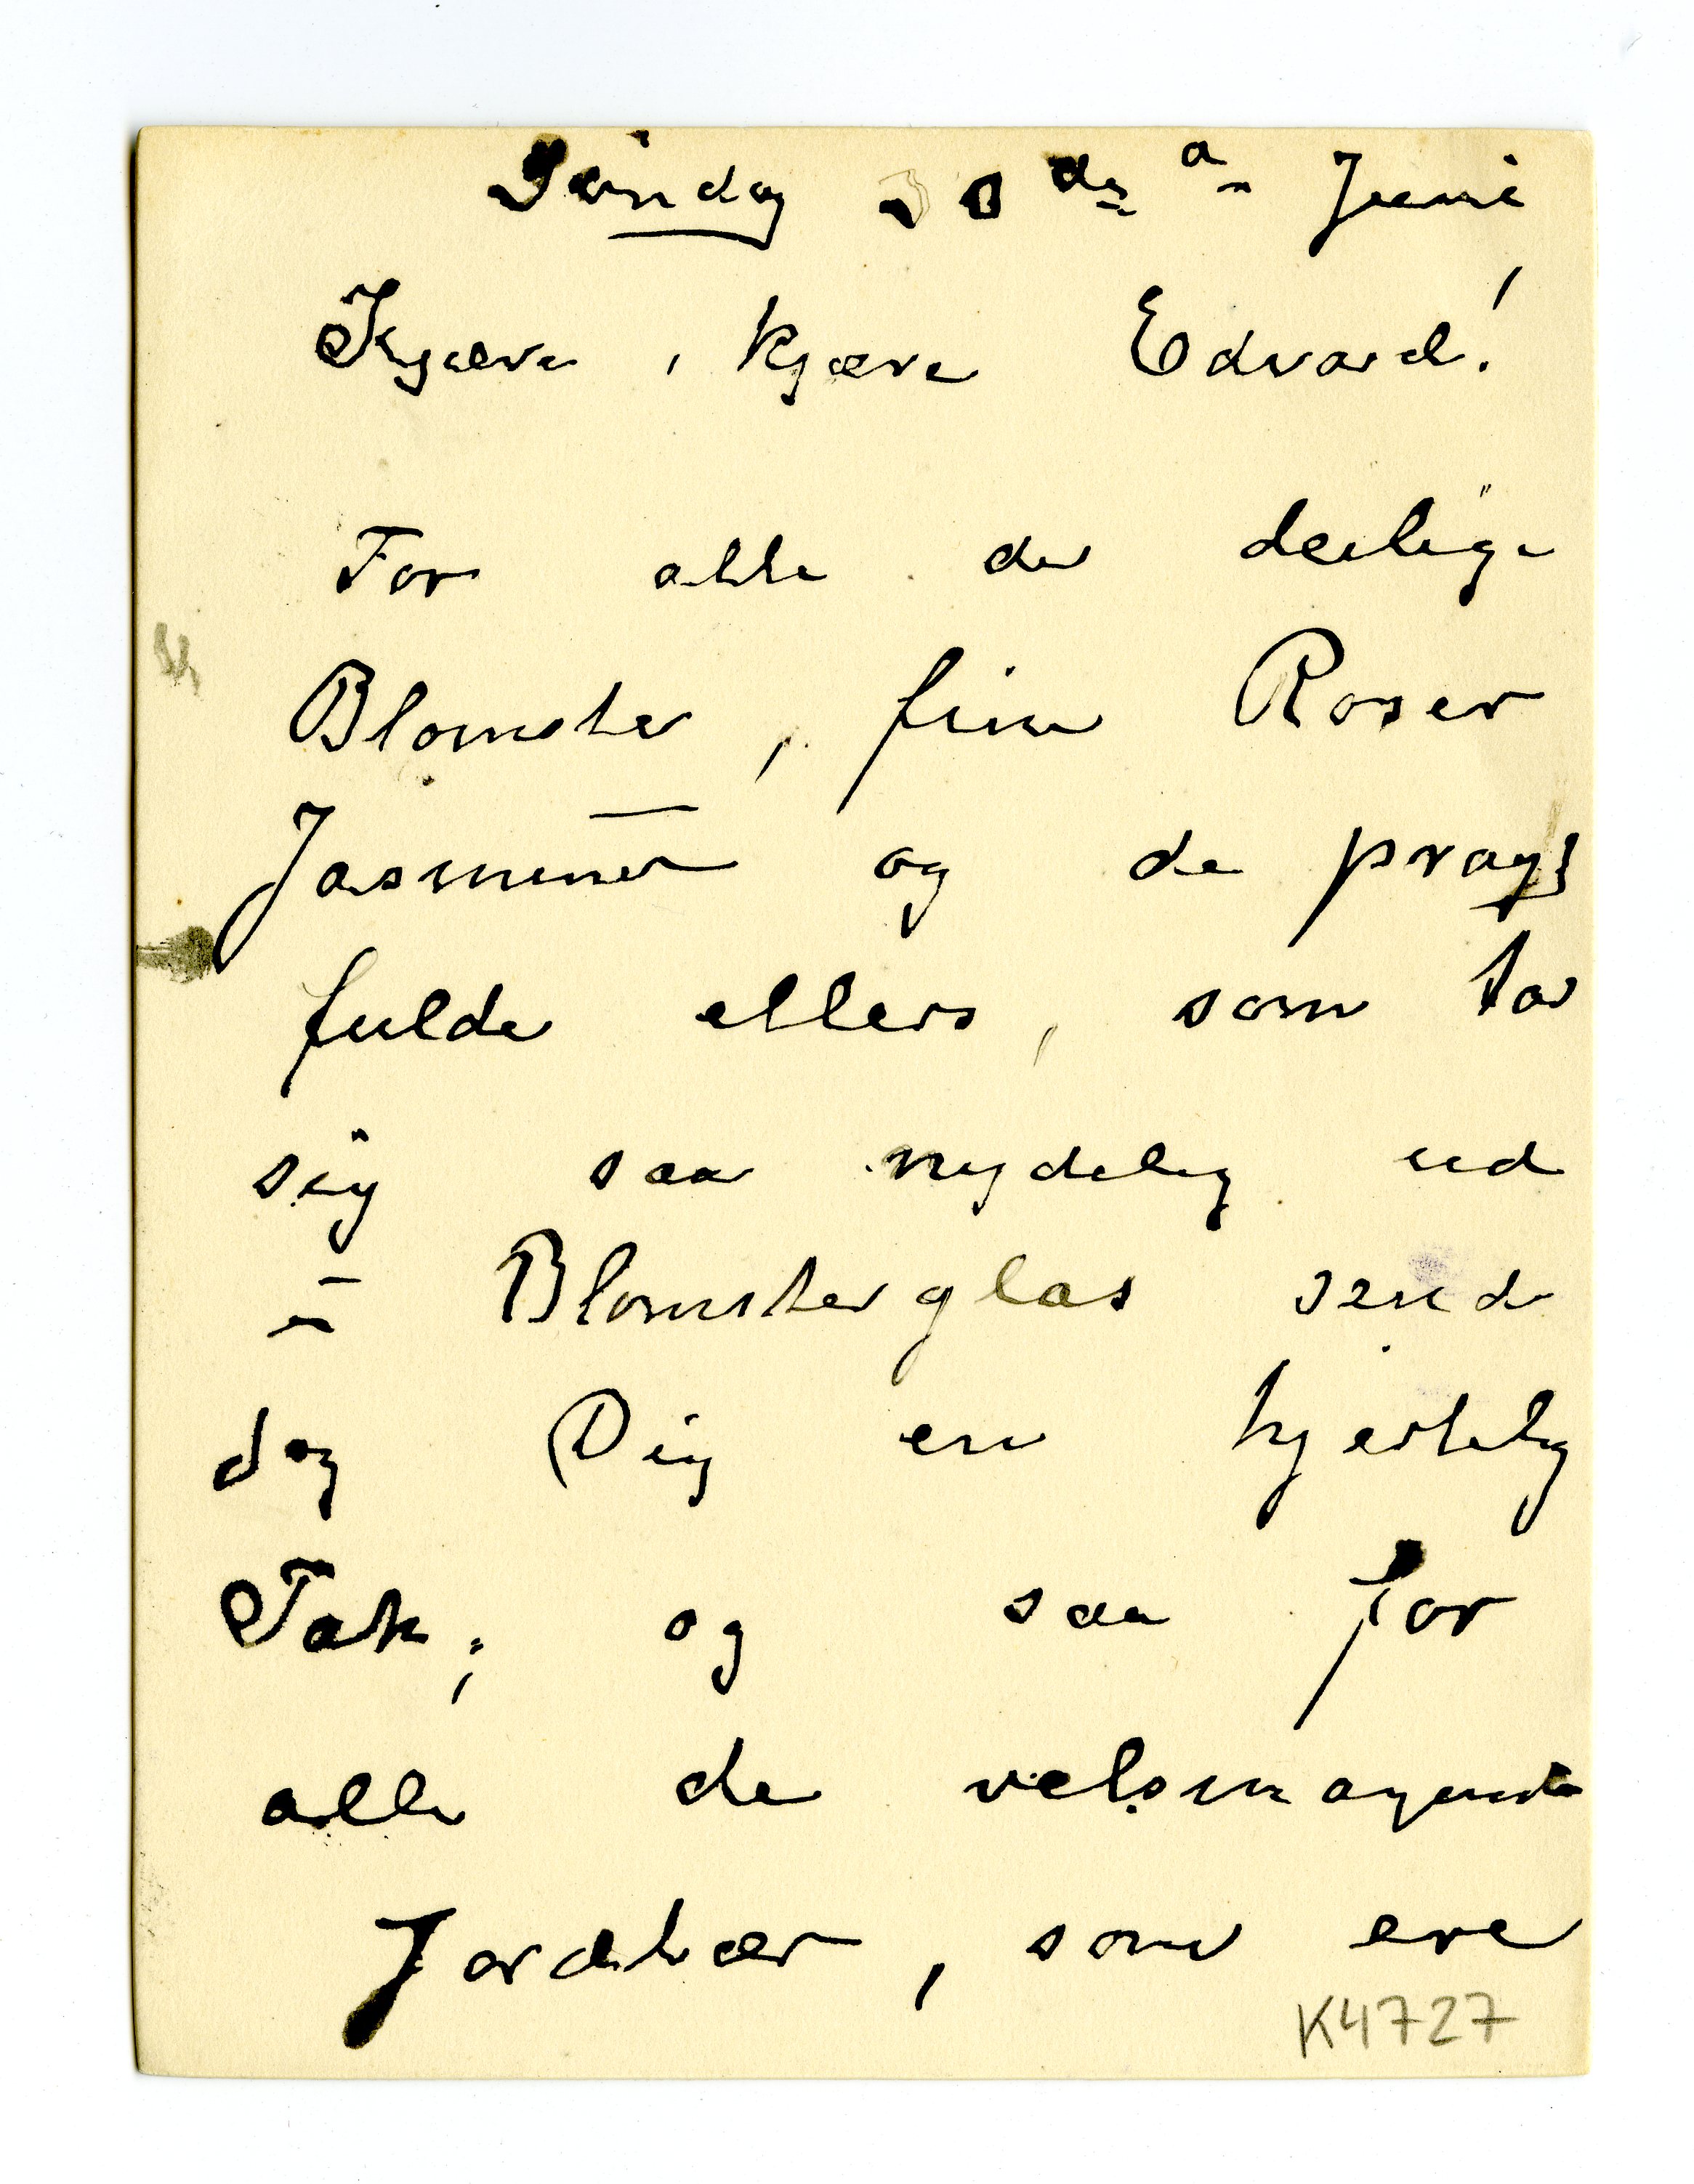 Søndag 30 de Juni
Kjære, kjære Edvard!
For alle de deilige
Blomster, fine Roser
Jasminer og de pragt
fulde ellers, som tar
sig saa nydelig ud
i Blomsterglas sender
jeg Dig en hjertelig
Tak; og saa for
alle de velsmagende
Jordbær, som ere
K4727